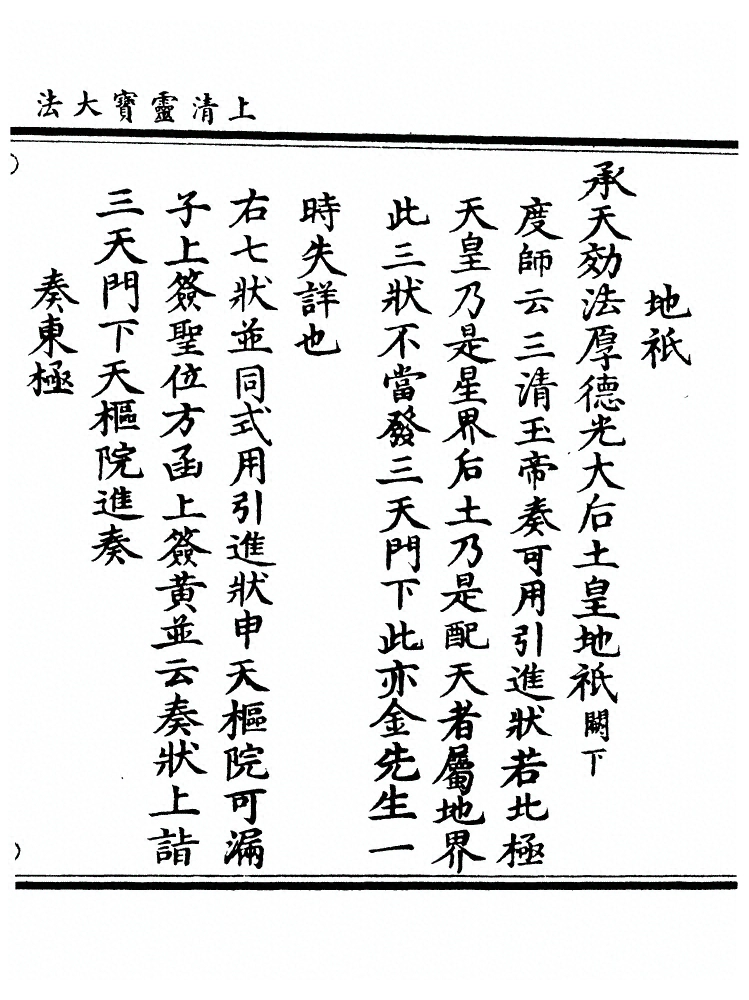 上清靈寶大法
地祇
承天効法厚德光大后土皇地祇闕下
度師云三清玉帝奏可用引進狀若北極
天皇乃是星界后土乃是配天者屬地界
此三狀不當發三天門下此亦金先生一
時失詳也
右七狀並同式用引進狀申天樞院可漏
子上簽聖位方函上簽黃並云奏狀上詣
三天門下天樞院進奏
奏東極